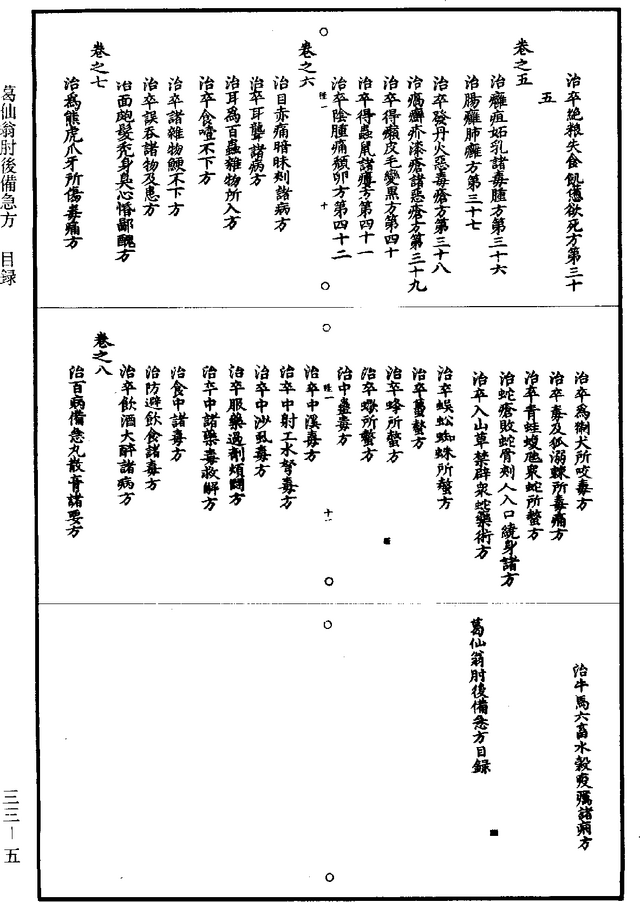 治卒絕粮失食飢憊欲死方第三十
五
卷之五
治癰疽妬乳諸毒腫方第三十六
治腸癰肺癰方第三十七
治卒發丹火惡毒瘡方第三十八
治瘑癬疥漆瘡諸惡瘡方第三十九
治卒得癩皮毛變黑方第四十
治卒得蟲鼠諸瘻方第四十一
治卒陰腫痛頹卵方第四十二
卷之六
治目赤痛暗昧刺諸病方
治卒耳聾諸病方
治耳爲百蟲雜物所入方
治卒食噎不下方
治卒諸雜物鯁不下方
治卒誤吞諸物及患方
治面皰髮禿身臭心惛鄙醜方
卷之七
治爲熊虎爪牙所傷毒痛方
治卒爲猘犬所咬毒方
治卒毒及狐溺棘所毒痛方
治卒青蛙蝮虺衆蛇所螫方
治蛇瘡敗蛇骨刺人入口繞身諸方
治卒入山草禁辟衆蛇藥術方
治卒蜈蚣蜘蛛所螫方
治卒蠆螫方
治卒蜂所螫方
治卒蠍所螫方
治中蠱毒方
治卒中溪毒方
治卒中射工水弩毒方
治卒中沙虱毒方
治卒服藥過劑煩悶方
治卒中諸藥毒救解方
治食中諸毒方
治防避飲食諸毒方
治卒飲酒大醉諸病方
卷之八
治百病備急丸散膏諸要方
治牛馬六畜水穀疫癘諸病方
葛仙翁肘後備急方目録
葛仙翁肘後備急方 目録
三三－五